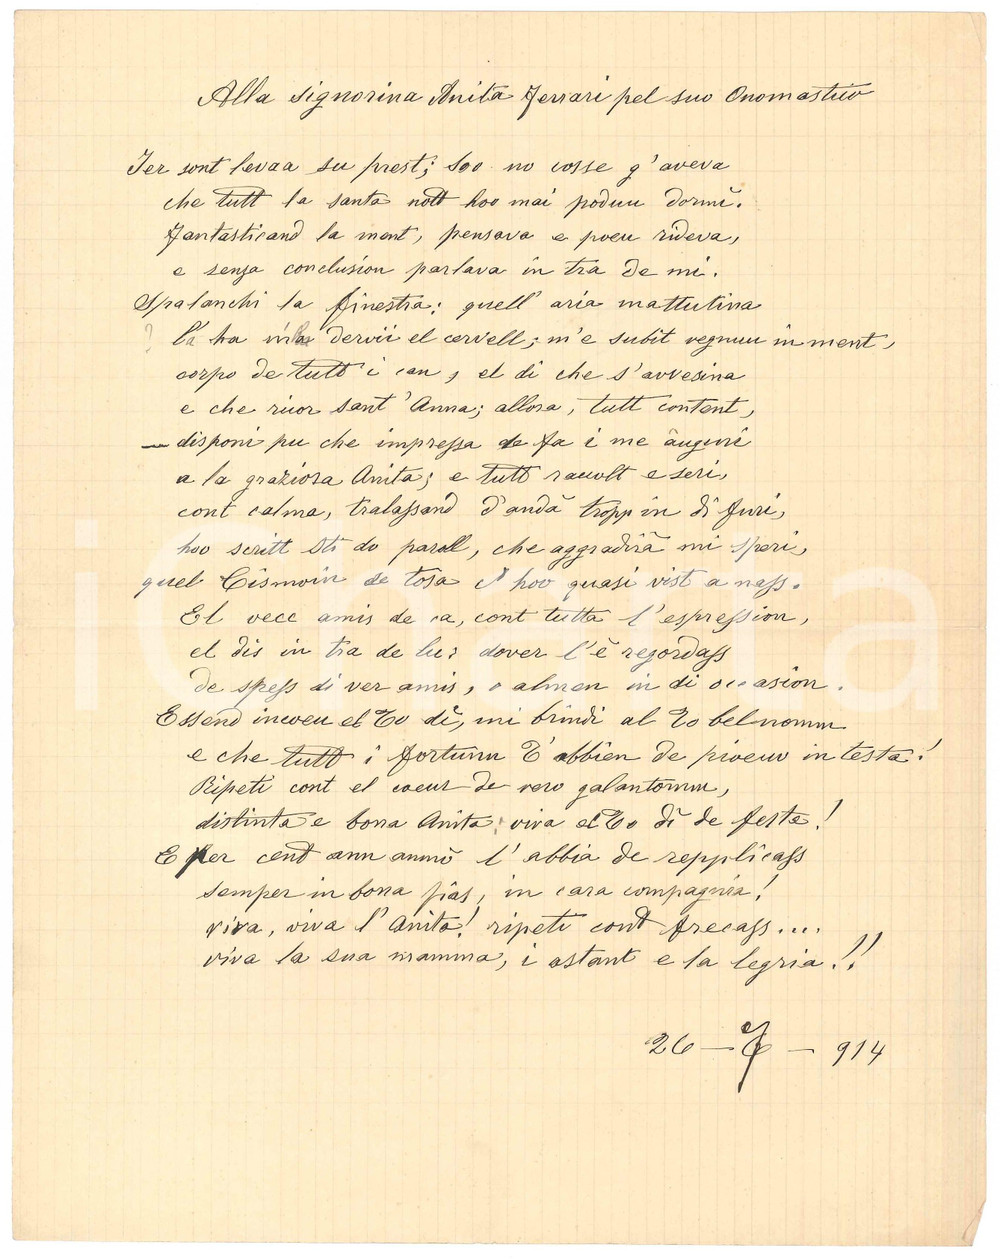 Alla signorina Anita Ferrari pel suo Onomastico
Jer sont levaa su prest; soo no cosse g'aveva
che tutt la santa nott hoo mai poduu dormì.
Fantasticand la ment, pensava e poeu rideva,
e senza conclusion parlava in tra de mi.
Spalanchi la finestra: quell'aria mattutina
? l'a ha dervii el cervell; m'e subit vegnuu in ment,
corpo de tutt i can, el dì che s'avvesina
e che ricor sant'Anna; allora, tutt content,
disponi pu che impressa de fa i me auguri
a la graziosa Anita; e tutt racolt e seri,
cont calma, tralassand d'andà tropp in di furi,
hoo scritt sti do paroll, che aggradirà mi speri,
quel Cismoin de tosa c'hoo quasi vist a nass.
El vecc amis de ca, cont tutta l'espression,
el dis in tra de lu: dover l'è regordass
de spess di ver amis, o almen in di occasion.
Essend incoeu el To dì, mi brindi al To bel nomm
e che tutt i fortunn T'abbien de pioeuv in testa!
Ripeti cont el coeur de vero galantomm,
distinta e bona Anita, viva el To dì de festa!
E per cent ann anmò l'abbia de repplicass
semper in bona pas, in cara compagnia!
viva, viva l'Anita! ripeti cont frecass....
viva la sua mamma, i astant e la legria!!
26 — 7 — 914
iCharta